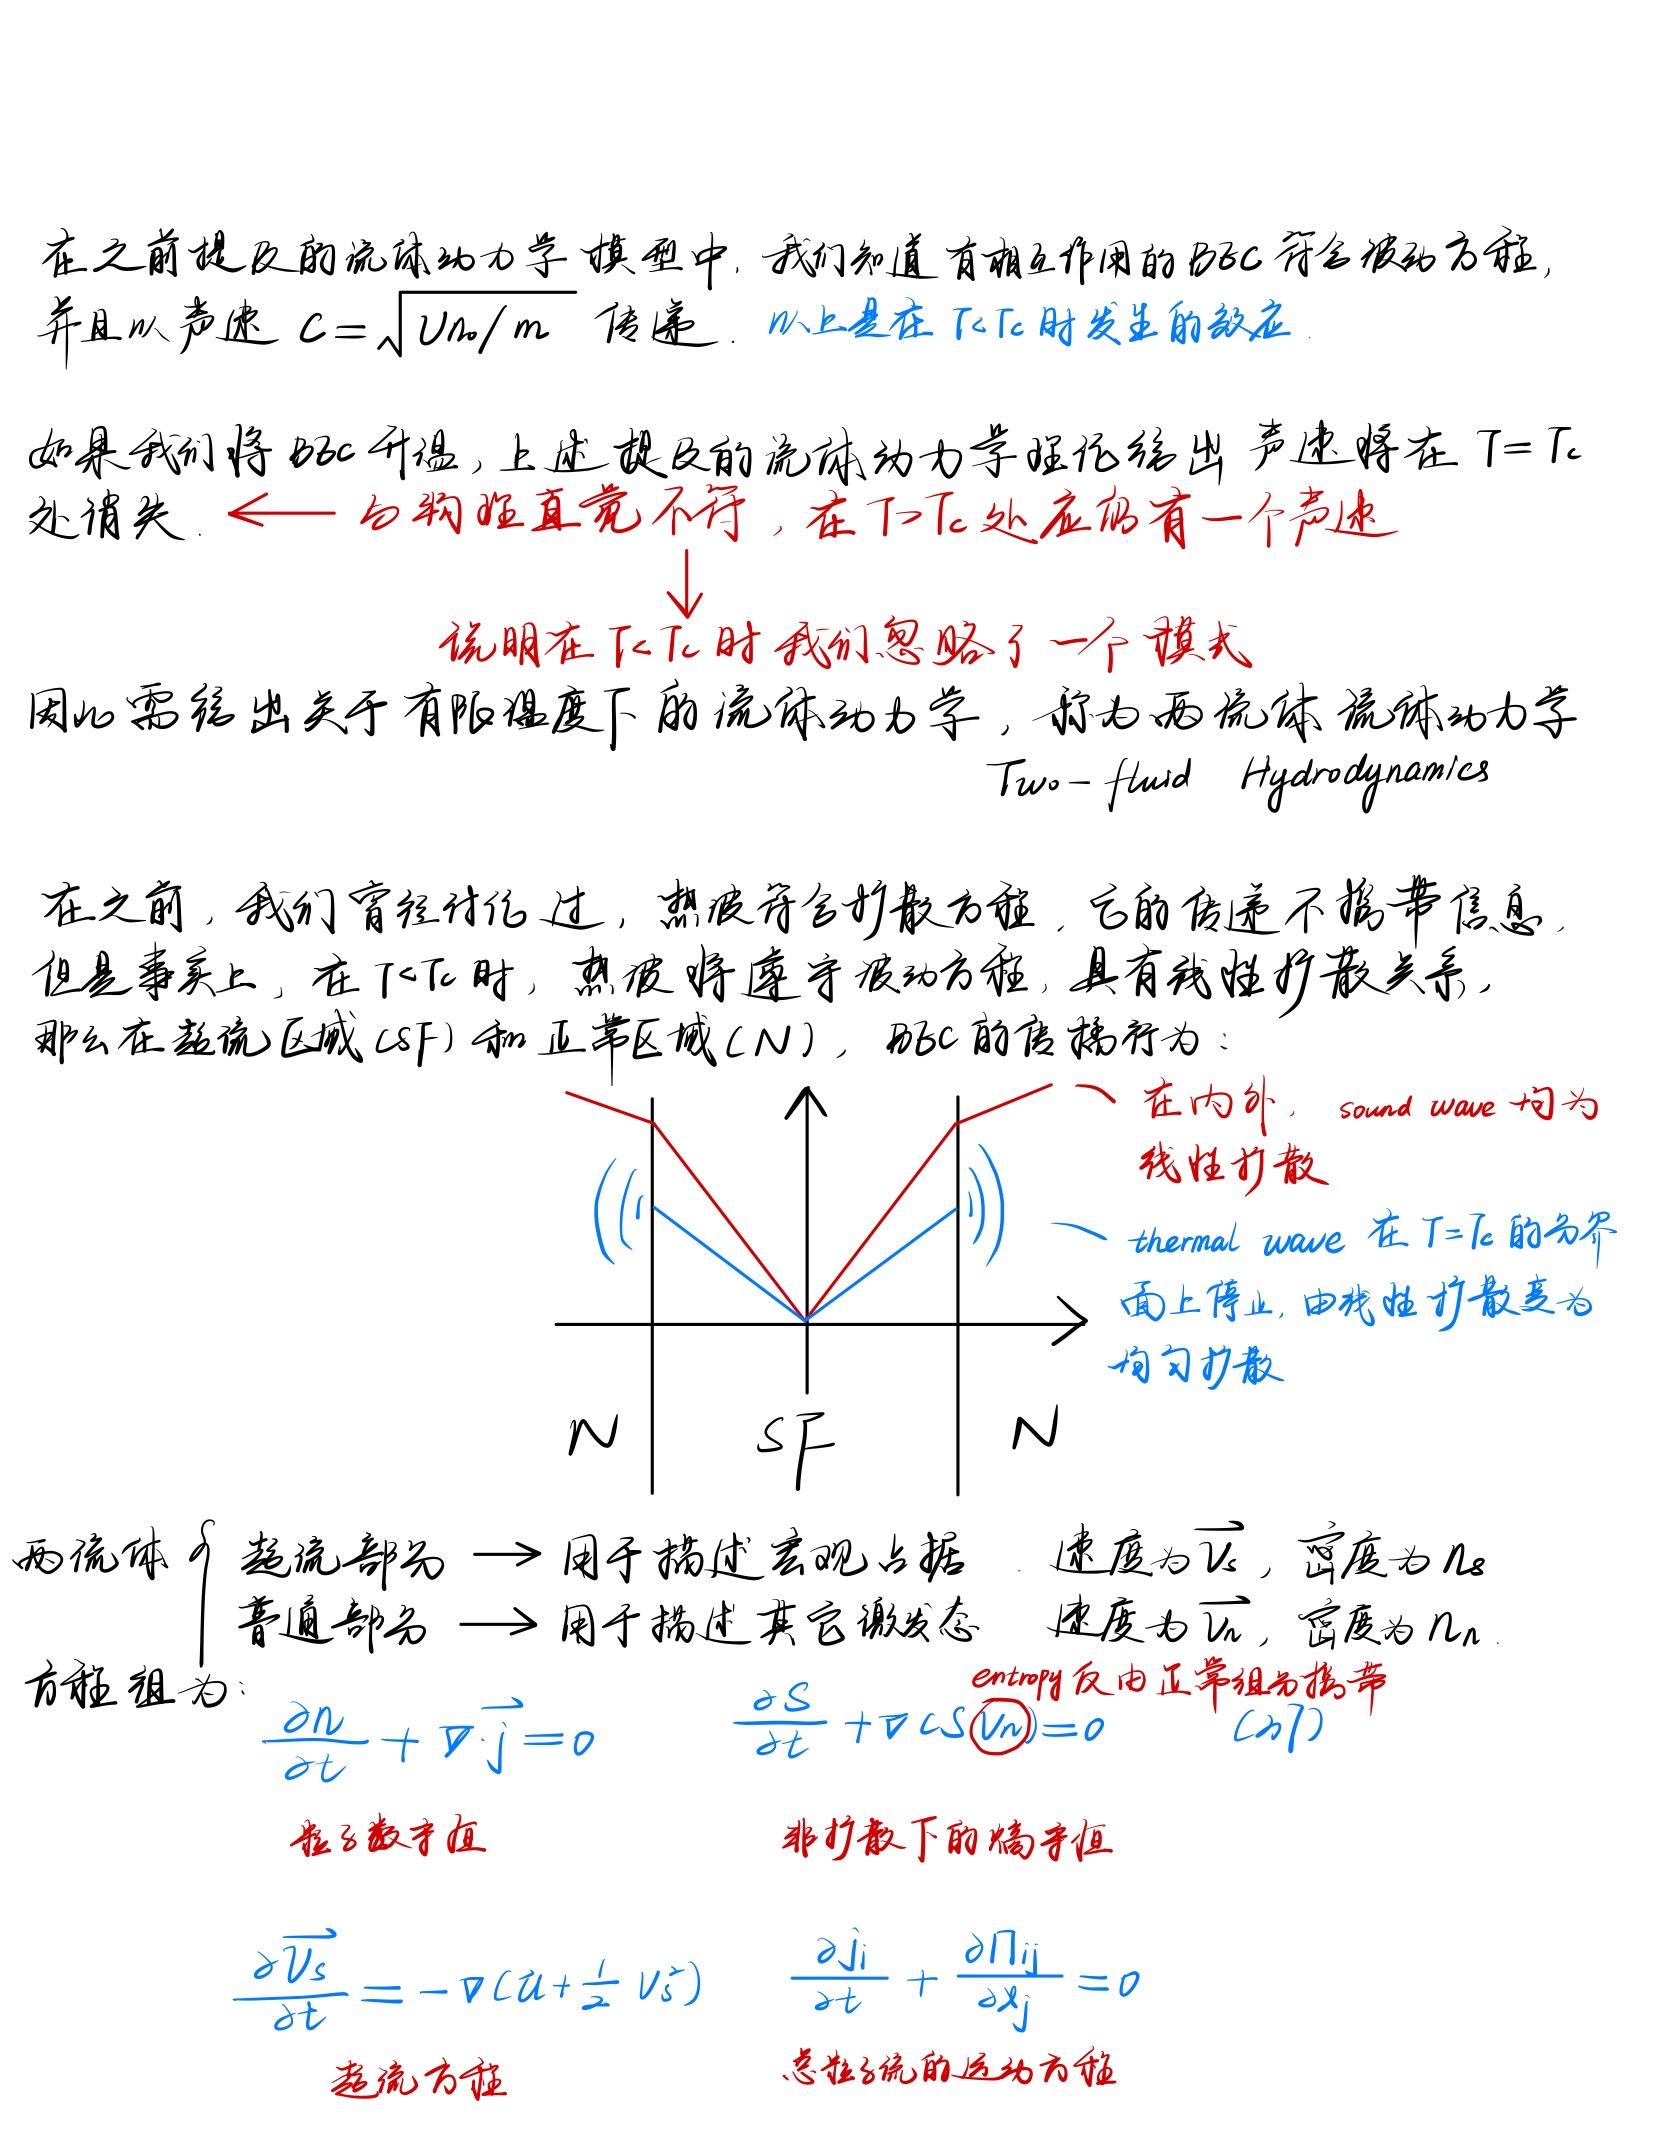 在之前提及的流体动力学模型中，我们知道有相互作用的BEC符合波动方程，
并且以声速 C=√(Un₀/m) 传递. 以上是在 T<Tc 时发生的效应.
如果我们将BEC升温，上述提及的流体动力学理论给出声速将在 T=Tc
处消失. ← 与物理直觉不符，在T>Tc处应仍有一个声速
↓
说明在T<Tc时我们忽略了一个模式
因此需给出关于有限温度下的流体动力学，称为两流体流体动力学
Two-fluid Hydrodynamics
在之前，我们曾经讨论过，热波符合扩散方程，它的传递不携带信息，
但是事实上，在T<Tc时，热波将遵守波动方程，具有线性扩散关系，
那么在超流区域(SF)和正常区域(N)，BEC的传播行为：
在内外，sound wave 均为
线性扩散
thermal wave 在 T=Tc 的分界
面上停止，由线性扩散变为
均匀扩散
N SF N
两流体 { 超流部分 → 用于描述宏观占据. 速度为 v⃗s，密度为 ns
普通部分 → 用于描述其它激发态 速度为 v⃗n，密度为 nn.
方程组为：
entropy 仅由正常组分携带
∂n/∂t + ∇·j⃗ = 0 ∂S/∂t + ∇(S Vn) = 0 (n↑)
粒子数守恒 非扩散下的熵守恒
∂v⃗s/∂t = -∇(ũ + 1/2 Vs²) ∂ji/∂t + ∂Πij/∂xj = 0
超流方程 总粒子流的运动方程